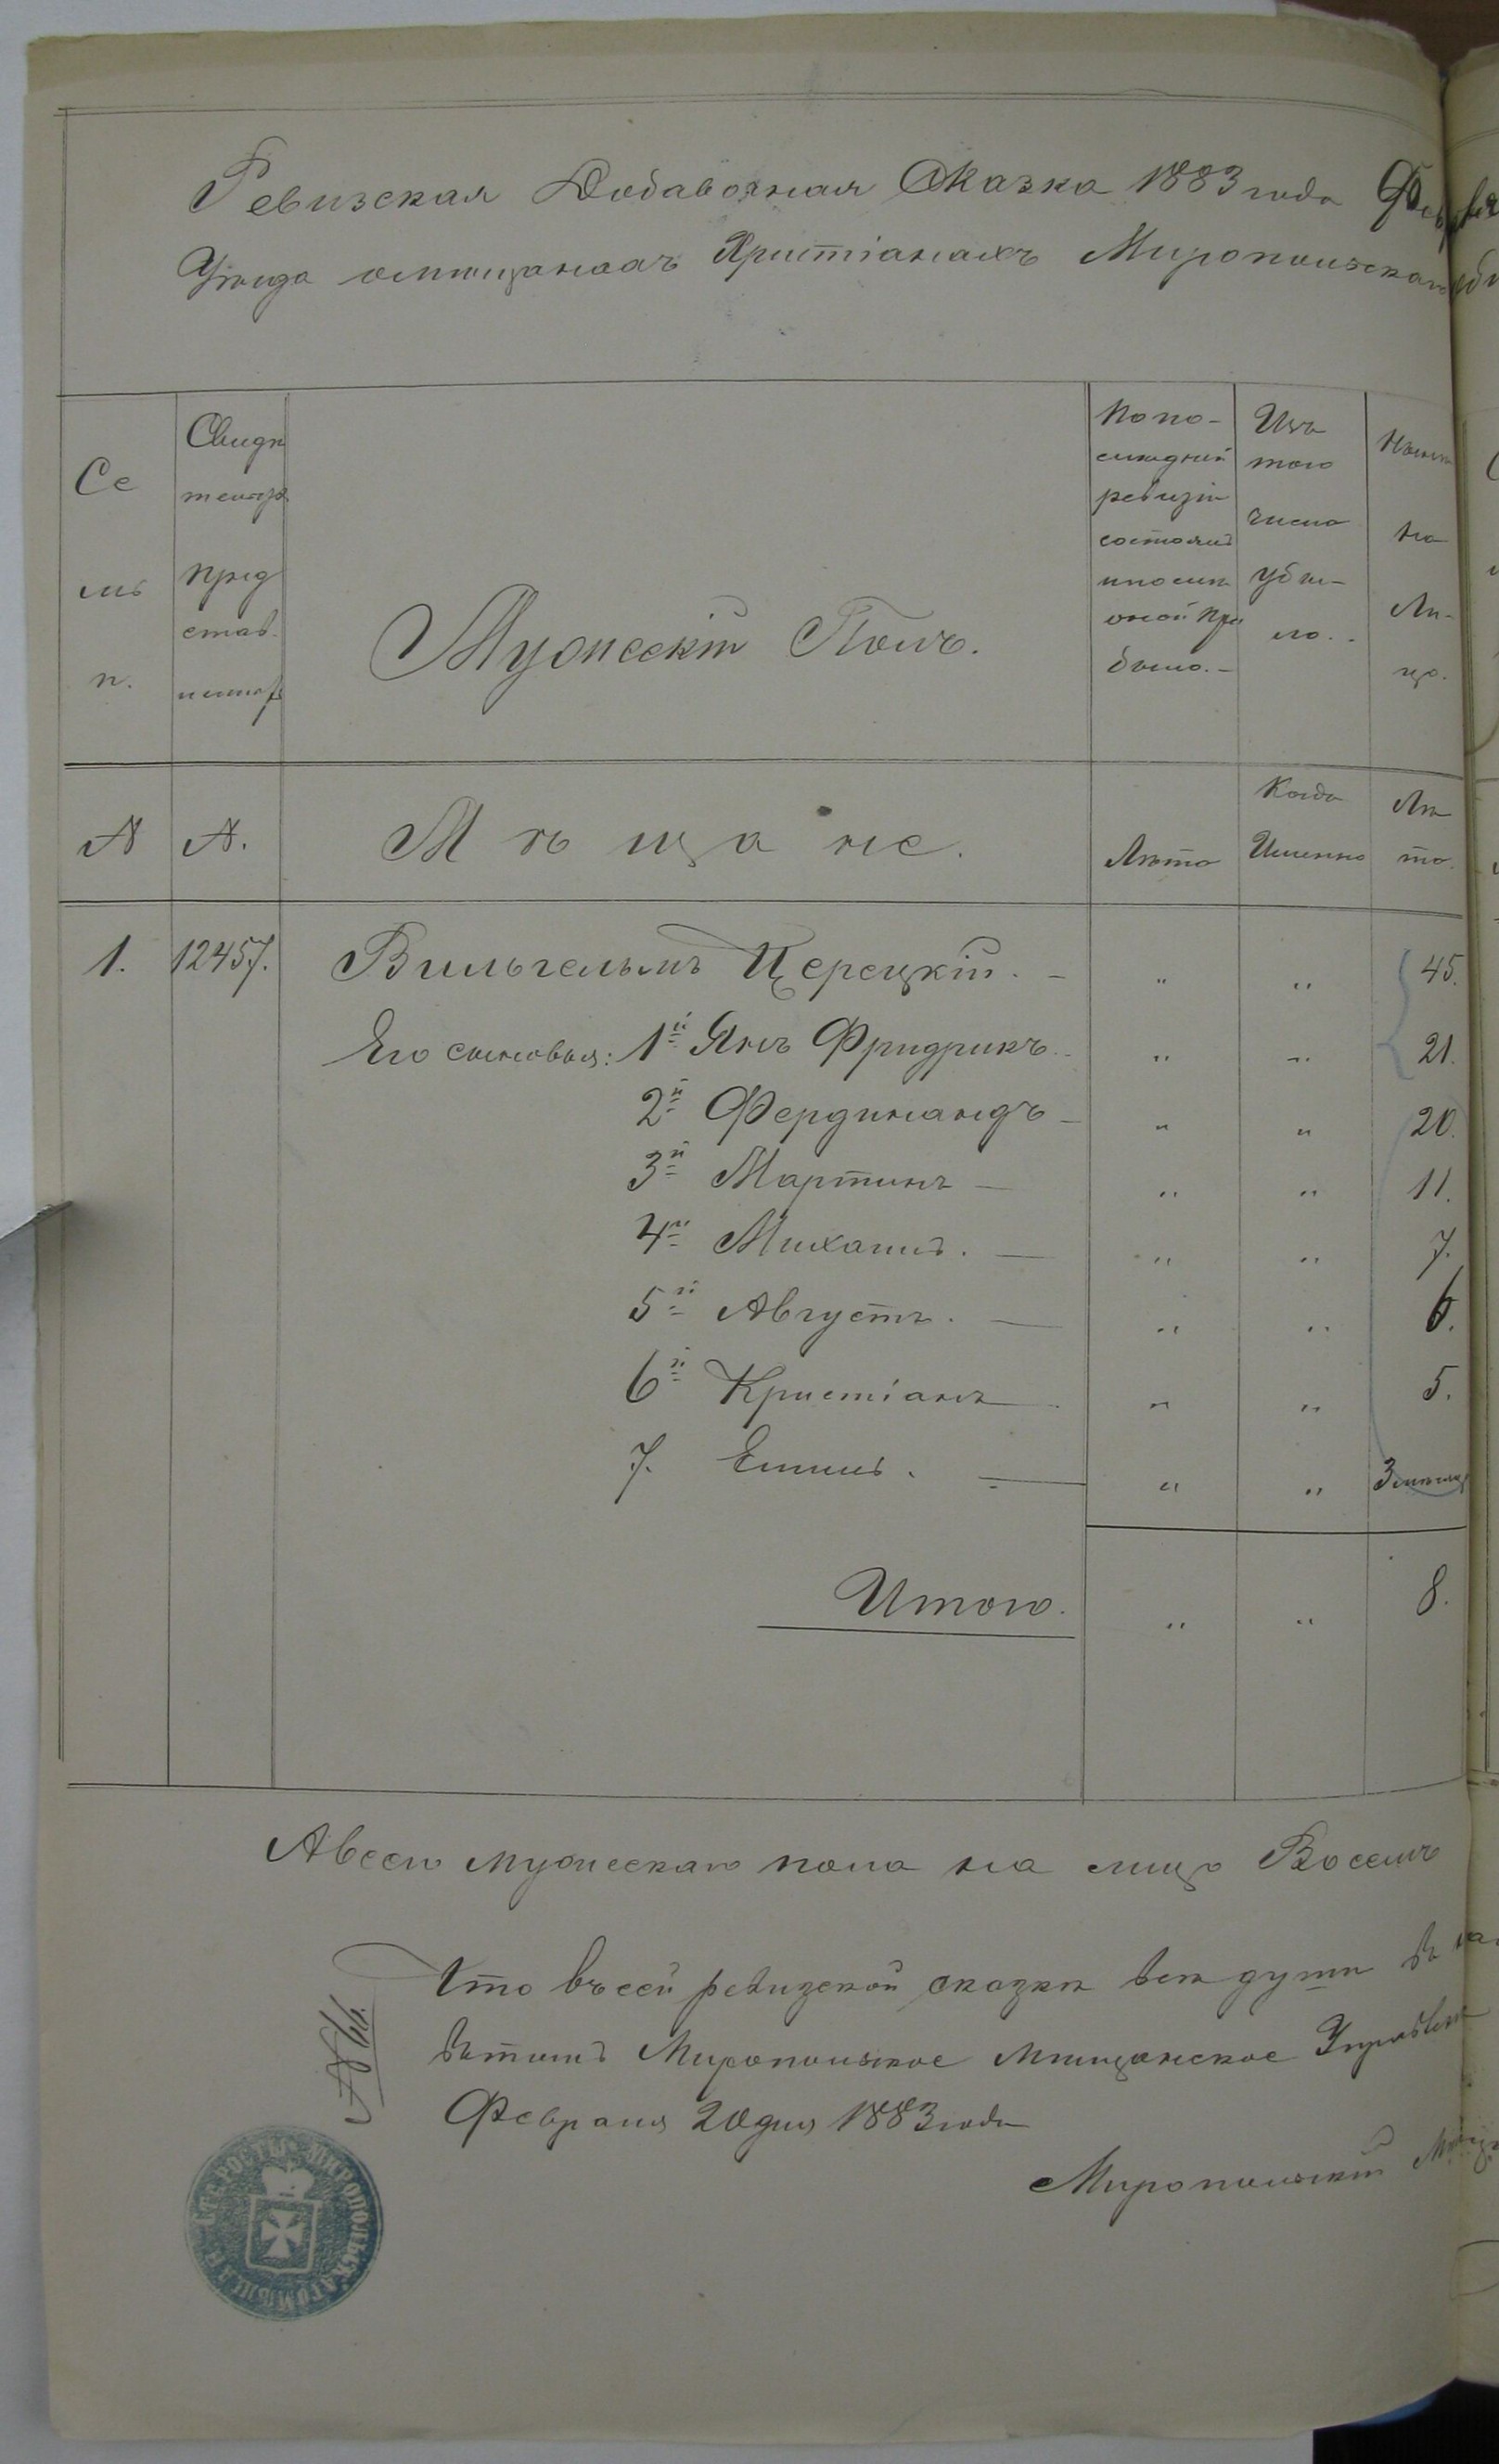 Ревизская Добавочная Сказка 1883 года
Уѣзда омѣщанахъ Христіанахъ Миропольскаго
Се
мь
п.
Свидѣ
тельс
пред
став.
Мужескій Полъ.
Попо-
слѣдней
ревизіи
состоялъ
ипослѣ
оной при
было.-
Изъ
того
числа
убы-
ло.-
Нынѣ
на
Ли-
цо.
№ №. Мѣщане. Лѣта Когда Именно Лѣ та.
1. 12457. Вильгельмъ Церецкій. - " " 45.
Его сыновья: 1й Янъ Фридрихъ. " " 21.
2й Фердинандъ - " " 20.
3й Мартинъ - " " 11.
4й Михаилъ. - " " 7.
5й Августъ. - " " 6.
6й Кристіанъ " " 5.
7. Емиль. - " " 3 мѣсяц
Итого. " " 8.
Авсего мужескаго пола на лицо Восемь
Что въсей ревизской сказкѣ всѣ души въ
Миропольское мѣщанское Управлен
Февраля 20 дня 1883 года
№ 66.
Миропольскій Мѣща
СТАРОСТЫ МИРОПОЛЬСКАГО МѢЩАН